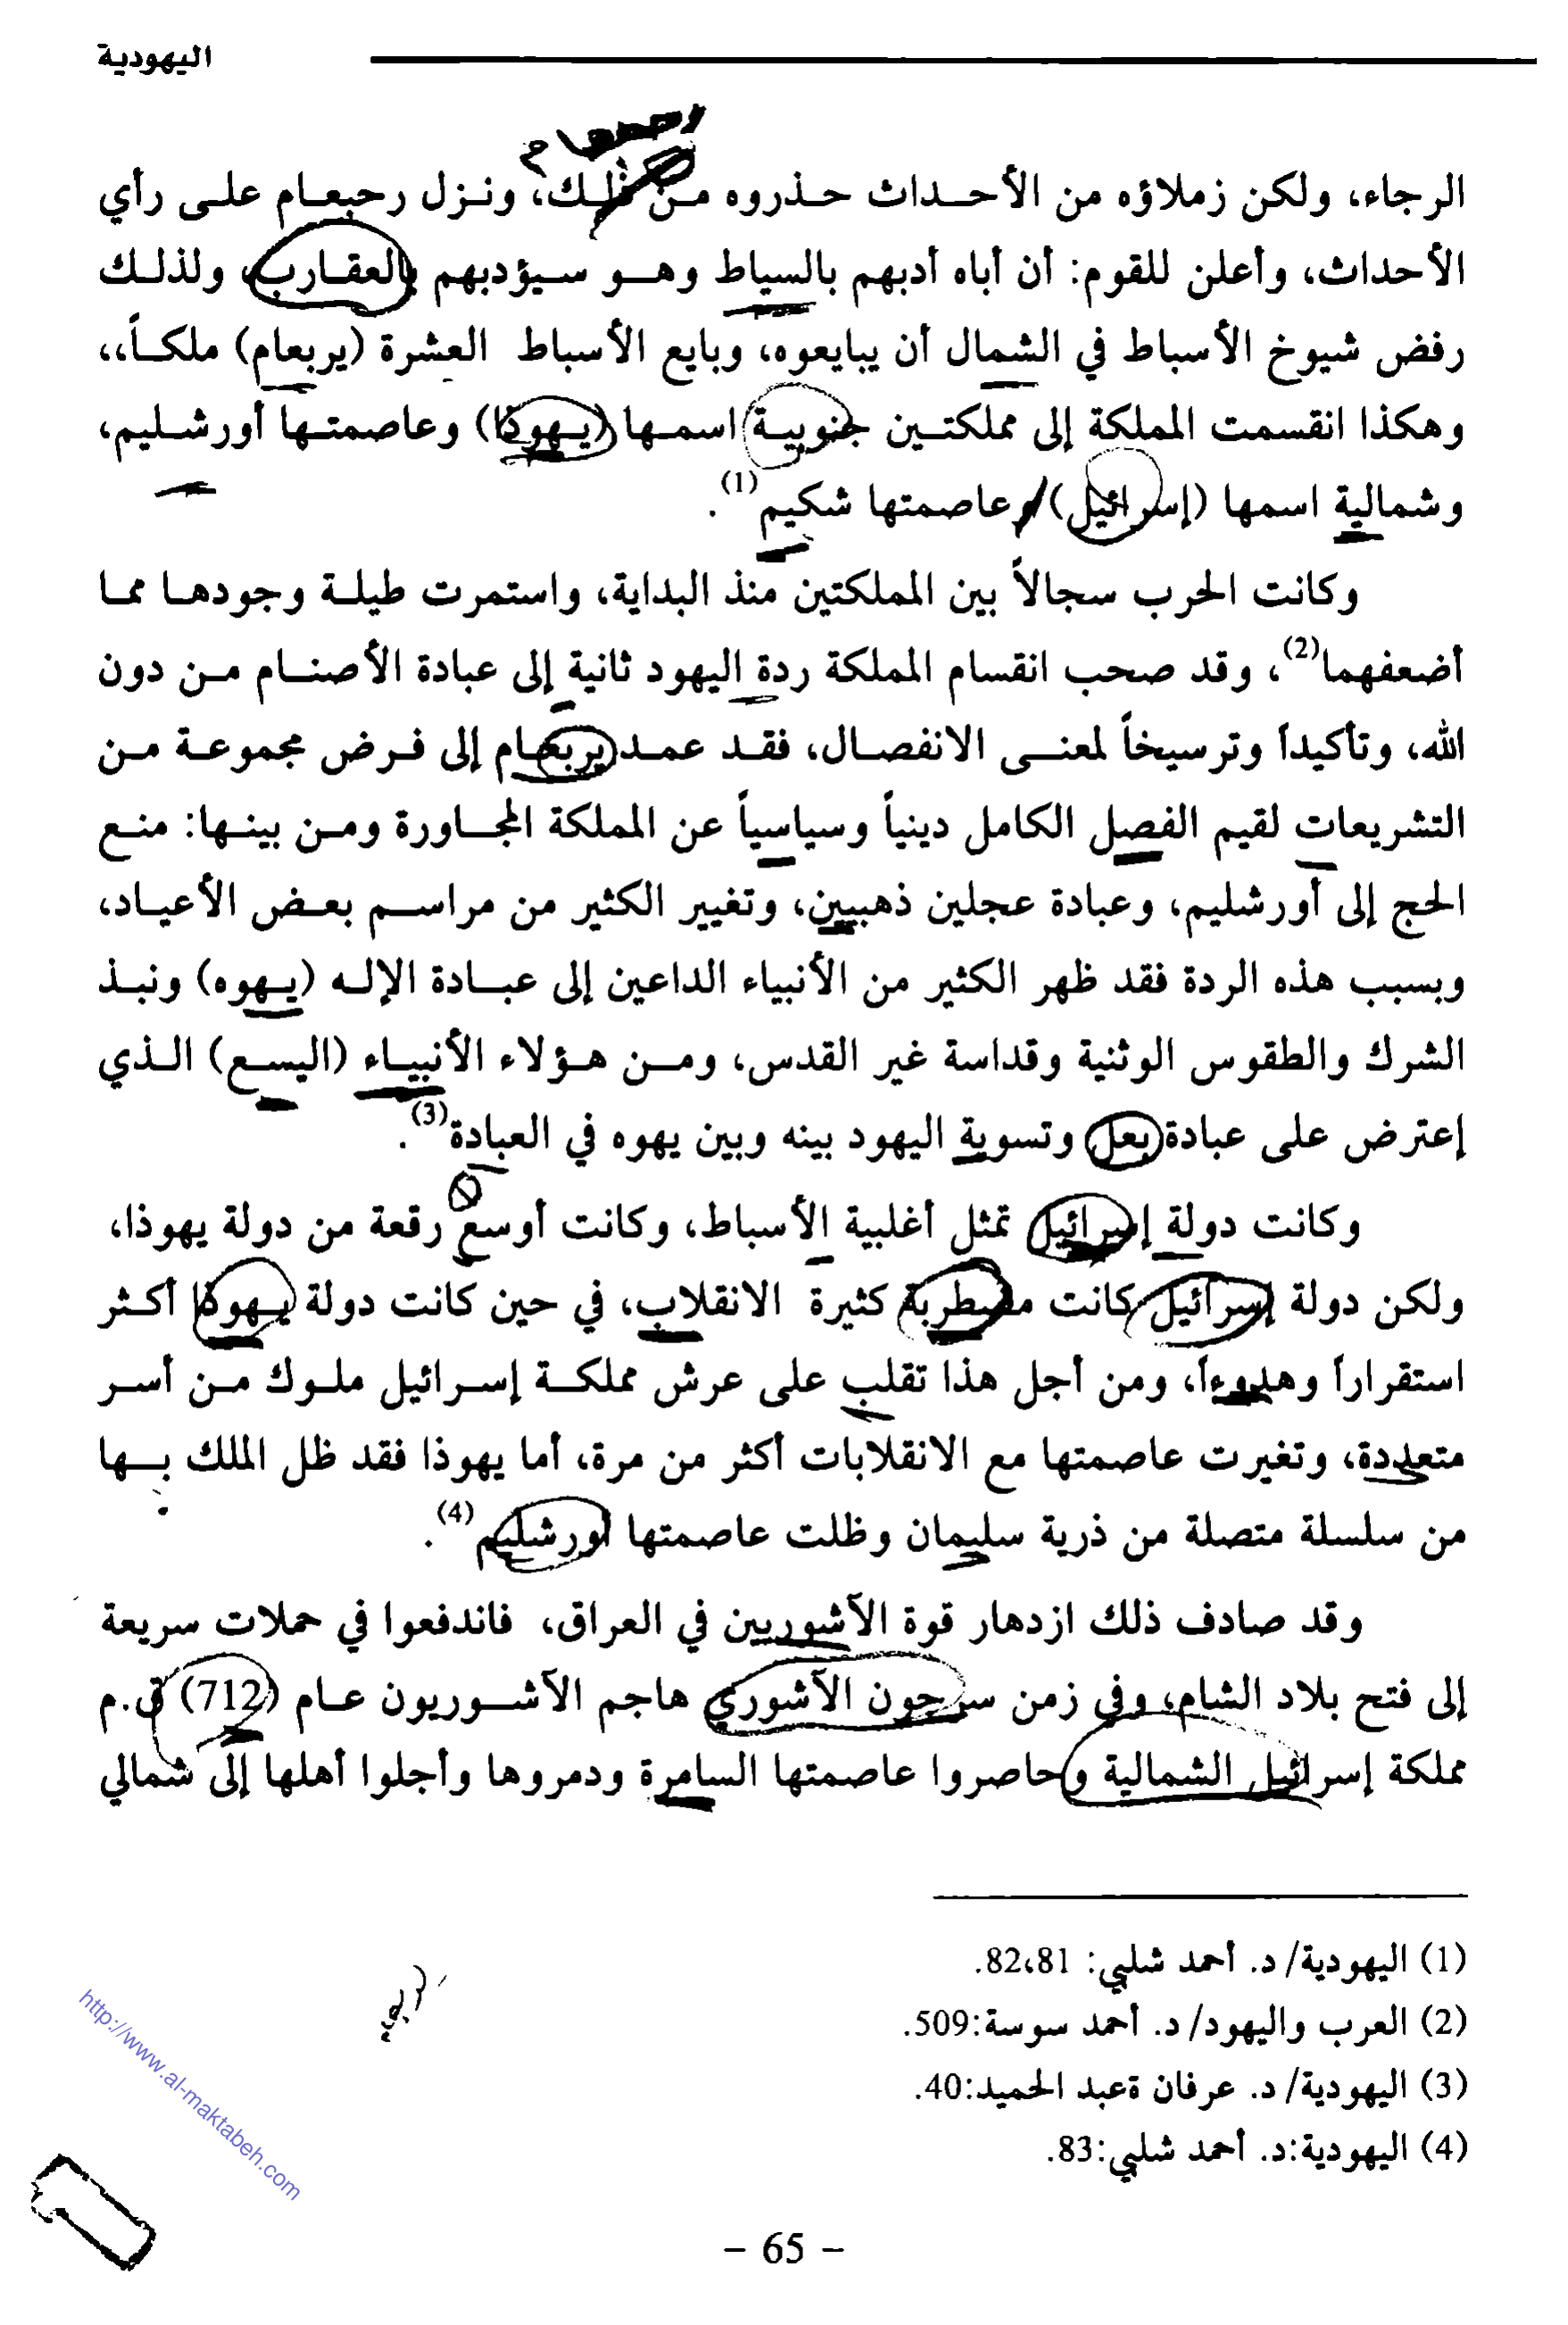 اليهودية
الرجاء، ولكن زملاؤه من الأحداث حذروه من ذلك، ونزل رحبعام على رأي
الأحداث، وأعلن للقوم: أن أباه أدبهم بالسياط وهو سيؤدبهم بالعقارب، ولذلك
رفض شيوخ الأسباط في الشمال أن يبايعوه، وبايع الأسباط العشرة (يربعام) ملكاً،،
وهكذا انقسمت المملكة إلى مملكتين جنوبية اسمها (يهوذا) وعاصمتها أورشليم،
وشمالية اسمها (إسرائيل) وعاصمتها شكيم(1).
وكانت الحرب سجالاً بين المملكتين منذ البداية، واستمرت طيلة وجودها مما
أضعفهما(2)، وقد صحب انقسام المملكة ردة اليهود ثانية إلى عبادة الأصنام من دون
الله، وتأكيداً وترسيخاً لمعنى الانفصال، فقد عمد يربعام إلى فرض مجموعة من
التشريعات لقيم الفصل الكامل دينياً وسياسياً عن المملكة المجاورة ومن بينها: منع
الحج إلى أورشليم، وعبادة عجلين ذهبيين، وتغيير الكثير من مراسم بعض الأعياد،
وبسبب هذه الردة فقد ظهر الكثير من الأنبياء الداعين إلى عبادة الإله (يهوه) ونبذ
الشرك والطقوس الوثنية وقداسة غير القدس، ومن هؤلاء الأنبياء (اليسع) الذي
إعترض على عبادة بعل وتسوية اليهود بينه وبين يهوه في العبادة(3).
وكانت دولة إسرائيل تمثل أغلبية الأسباط، وكانت أوسع رقعة من دولة يهوذا،
ولكن دولة إسرائيل كانت مضطربة كثيرة الانقلاب، في حين كانت دولة يهوذا أكثر
استقراراً وهدوءاً، ومن أجل هذا تقلب على عرش مملكة إسرائيل ملوك من أسر
متعددة، وتغيرت عاصمتها مع الانقلابات أكثر من مرة، أما يهوذا فقد ظل الملك بها
من سلسلة متصلة من ذرية سليمان وظلت عاصمتها أورشليم(4).
وقد صادف ذلك ازدهار قوة الآشوريين في العراق، فاندفعوا في حملات سريعة
إلى فتح بلاد الشام، وفي زمن سرجون الآشوري هاجم الآشوريون عام (712) ق.م
مملكة إسرائيل الشمالية وحاصروا عاصمتها السامرة ودمروها وأجلوا أهلها إلى شمالي
(1) اليهودية/ د. أحمد شلبي: 82،81.
(2) العرب واليهود/ د. أحمد سوسة:509.
(3) اليهودية/ د. عرفان ةعبد الحميد:40.
(4) اليهودية:د. أحمد شلبي:83.
http://www.al-maktabeh.com
- 65 -